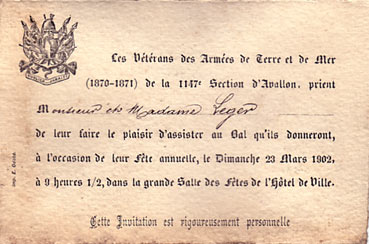 Les Vétérans des Armées de Terre et de Mer
(1870-1871) de la 1147e Section d'Avallon, prient
Monsieur et Madame Leger
de leur faire le plaisir d'assister au Bal qu'ils donneront,
à l'occasion de leur Fête annuelle, le Dimanche 23 Mars 1902,
à 9 heures 1/2, dans la grande Salle des Fêtes de l'Hôtel de Ville.
Cette Invitation est rigoureusement personnelle
Imp. E. Odobé